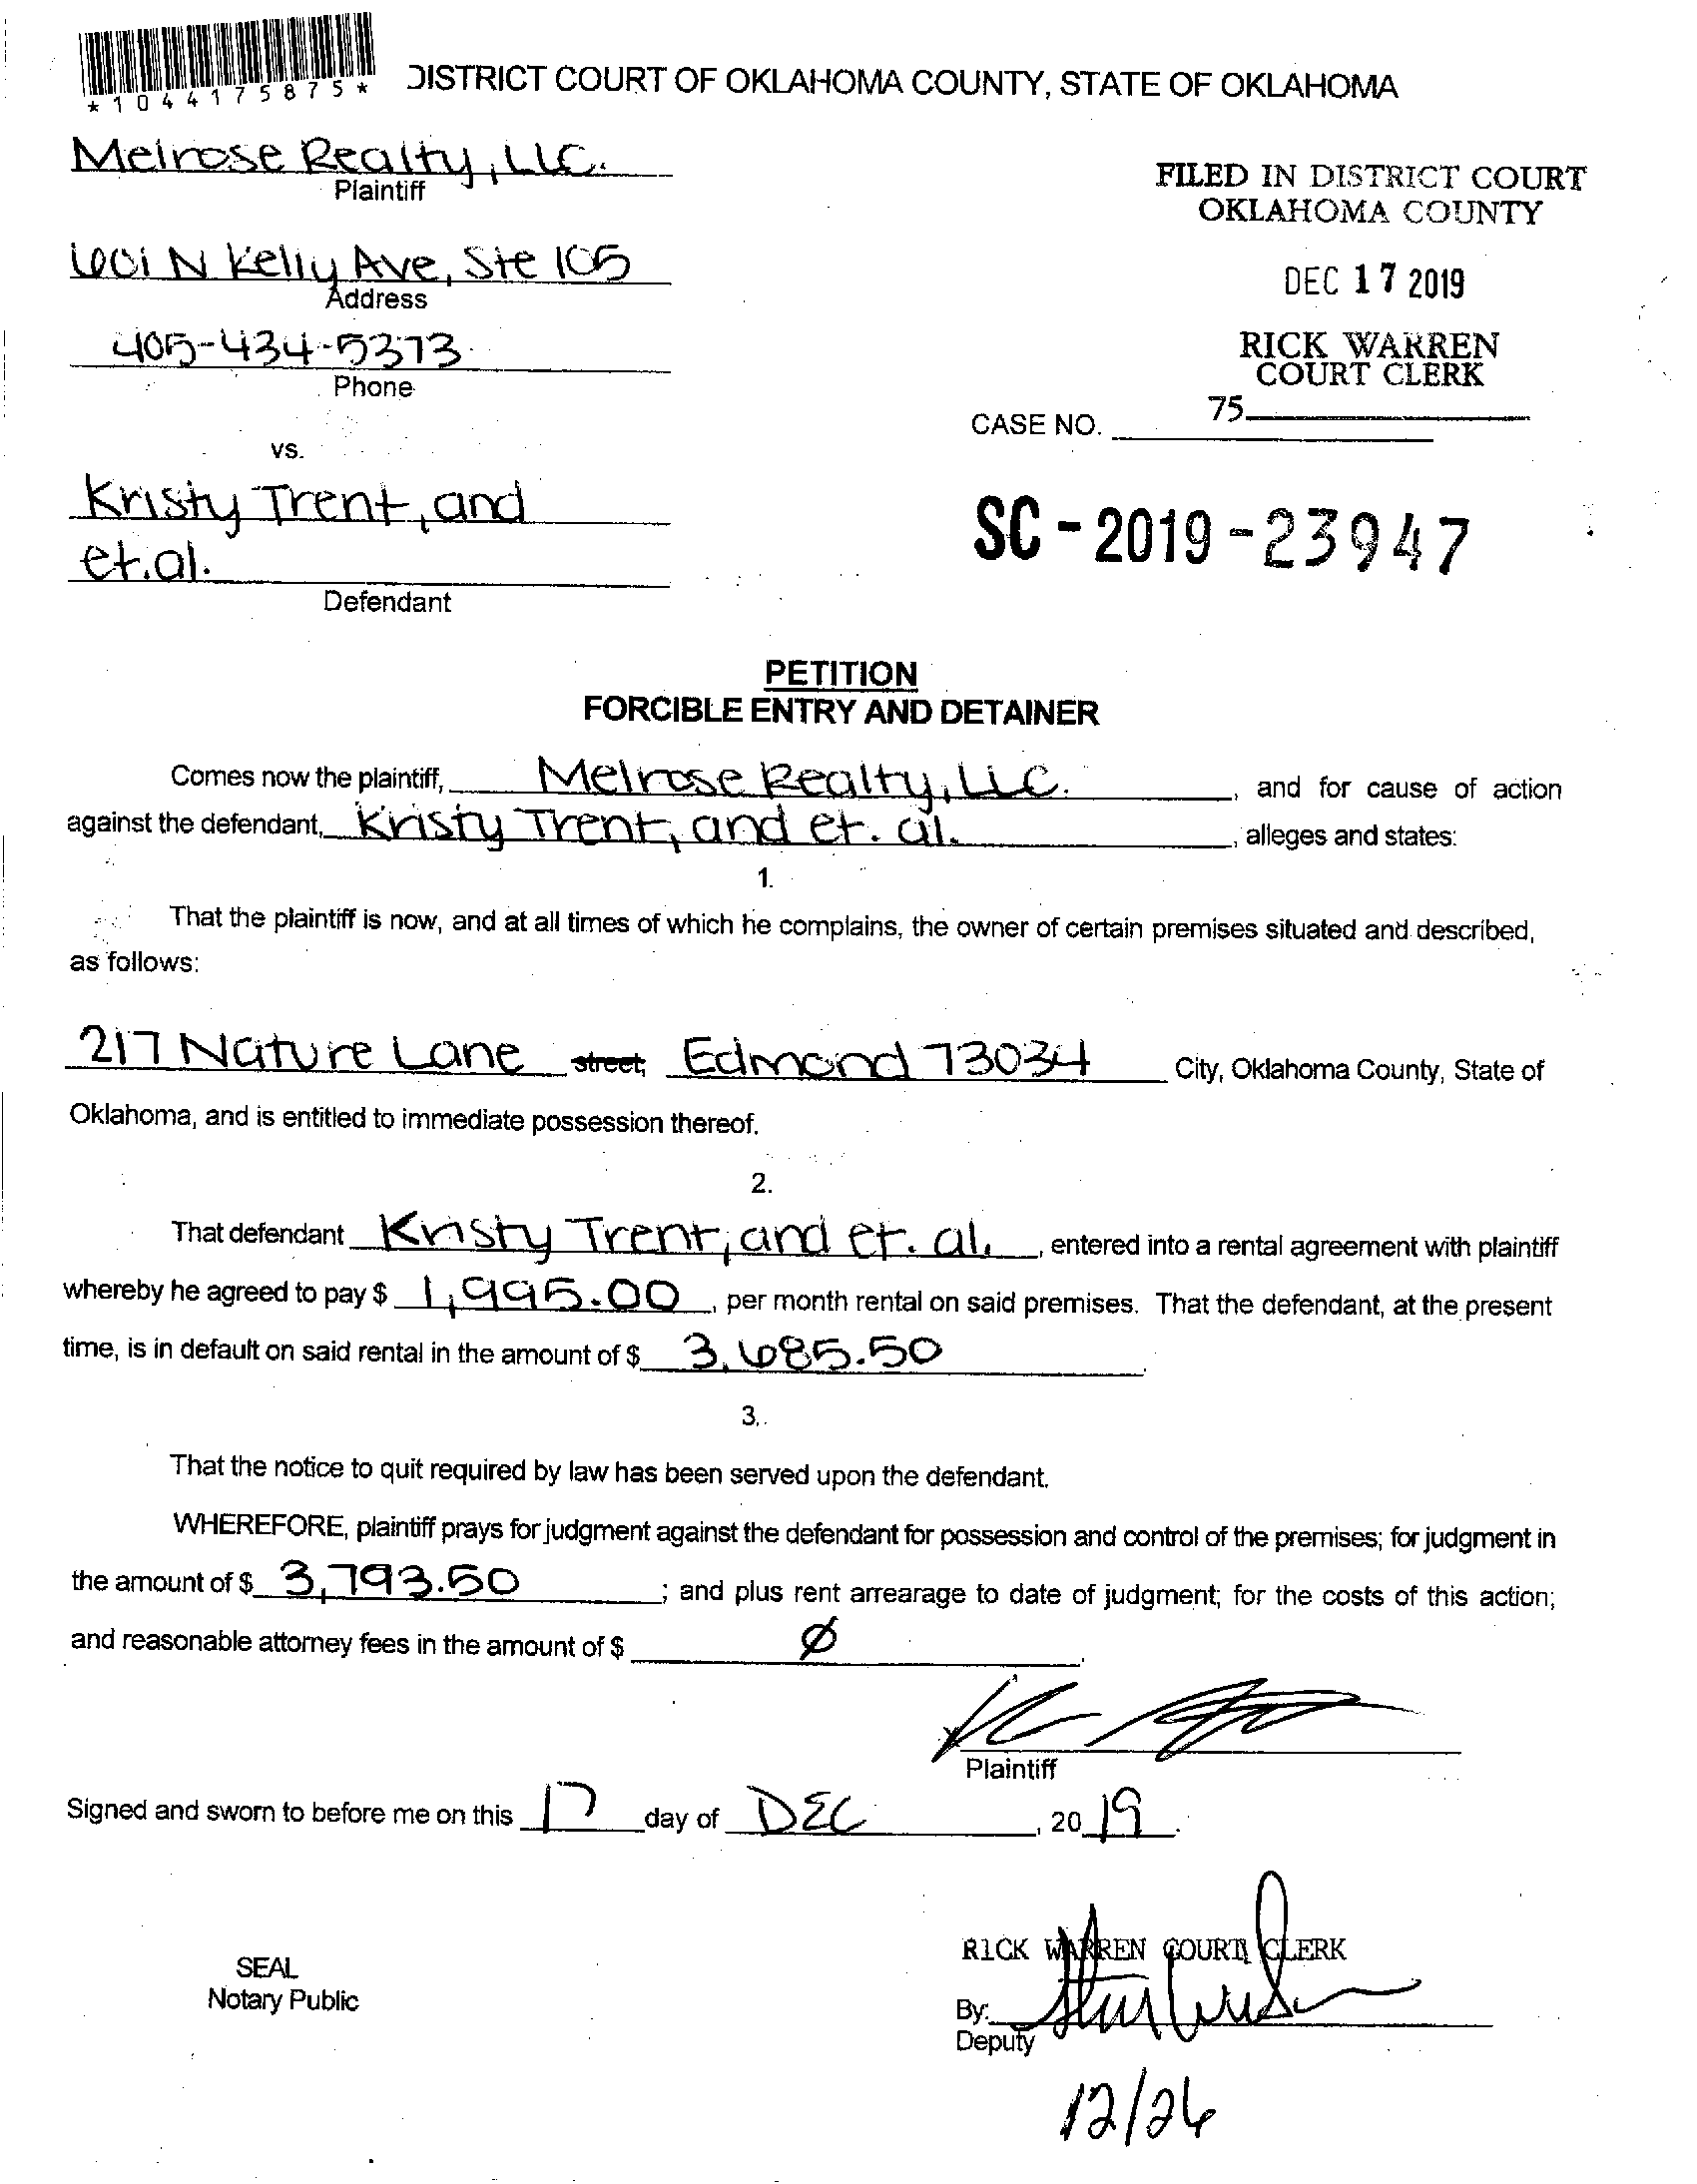 *1044175875*
DISTRICT COURT OF OKLAHOMA COUNTY, STATE OF OKLAHOMA
Melrose Realty, LLC.
Plaintiff
FILED IN DISTRICT COURT
OKLAHOMA COUNTY
601 N Kelly Ave, Ste 105
Address
DEC 17 2019
405-434-5373
Phone
RICK WARREN
COURT CLERK
75
CASE NO.
vs.
Kristy Trent, and
et. al.
Defendant
SC-2019-23947
PETITION
FORCIBLE ENTRY AND DETAINER
Comes now the plaintiff, Melrose Realty, LLC. , and for cause of action
against the defendant, Kristy Trent, and et. al. , alleges and states:
1.
That the plaintiff is now, and at all times of which he complains, the owner of certain premises situated and described,
as follows:
217 Nature Lane street, Edmond 73034 City, Oklahoma County, State of
Oklahoma, and is entitled to immediate possession thereof.
2.
That defendant Kristy Trent, and et. al. , entered into a rental agreement with plaintiff
whereby he agreed to pay $ 1,995.00 , per month rental on said premises. That the defendant, at the present
time, is in default on said rental in the amount of $ 3,685.50 .
3.
That the notice to quit required by law has been served upon the defendant.
WHEREFORE, plaintiff prays for judgment against the defendant for possession and control of the premises; for judgment in
the amount of $ 3,793.50 ; and plus rent arrearage to date of judgment; for the costs of this action;
and reasonable attorney fees in the amount of $ Ø .
Plaintiff
Signed and sworn to before me on this 17 day of DEC , 20 19 .
RICK WARREN COURT CLERK
SEAL
Notary Public
By:
Deputy
12/26